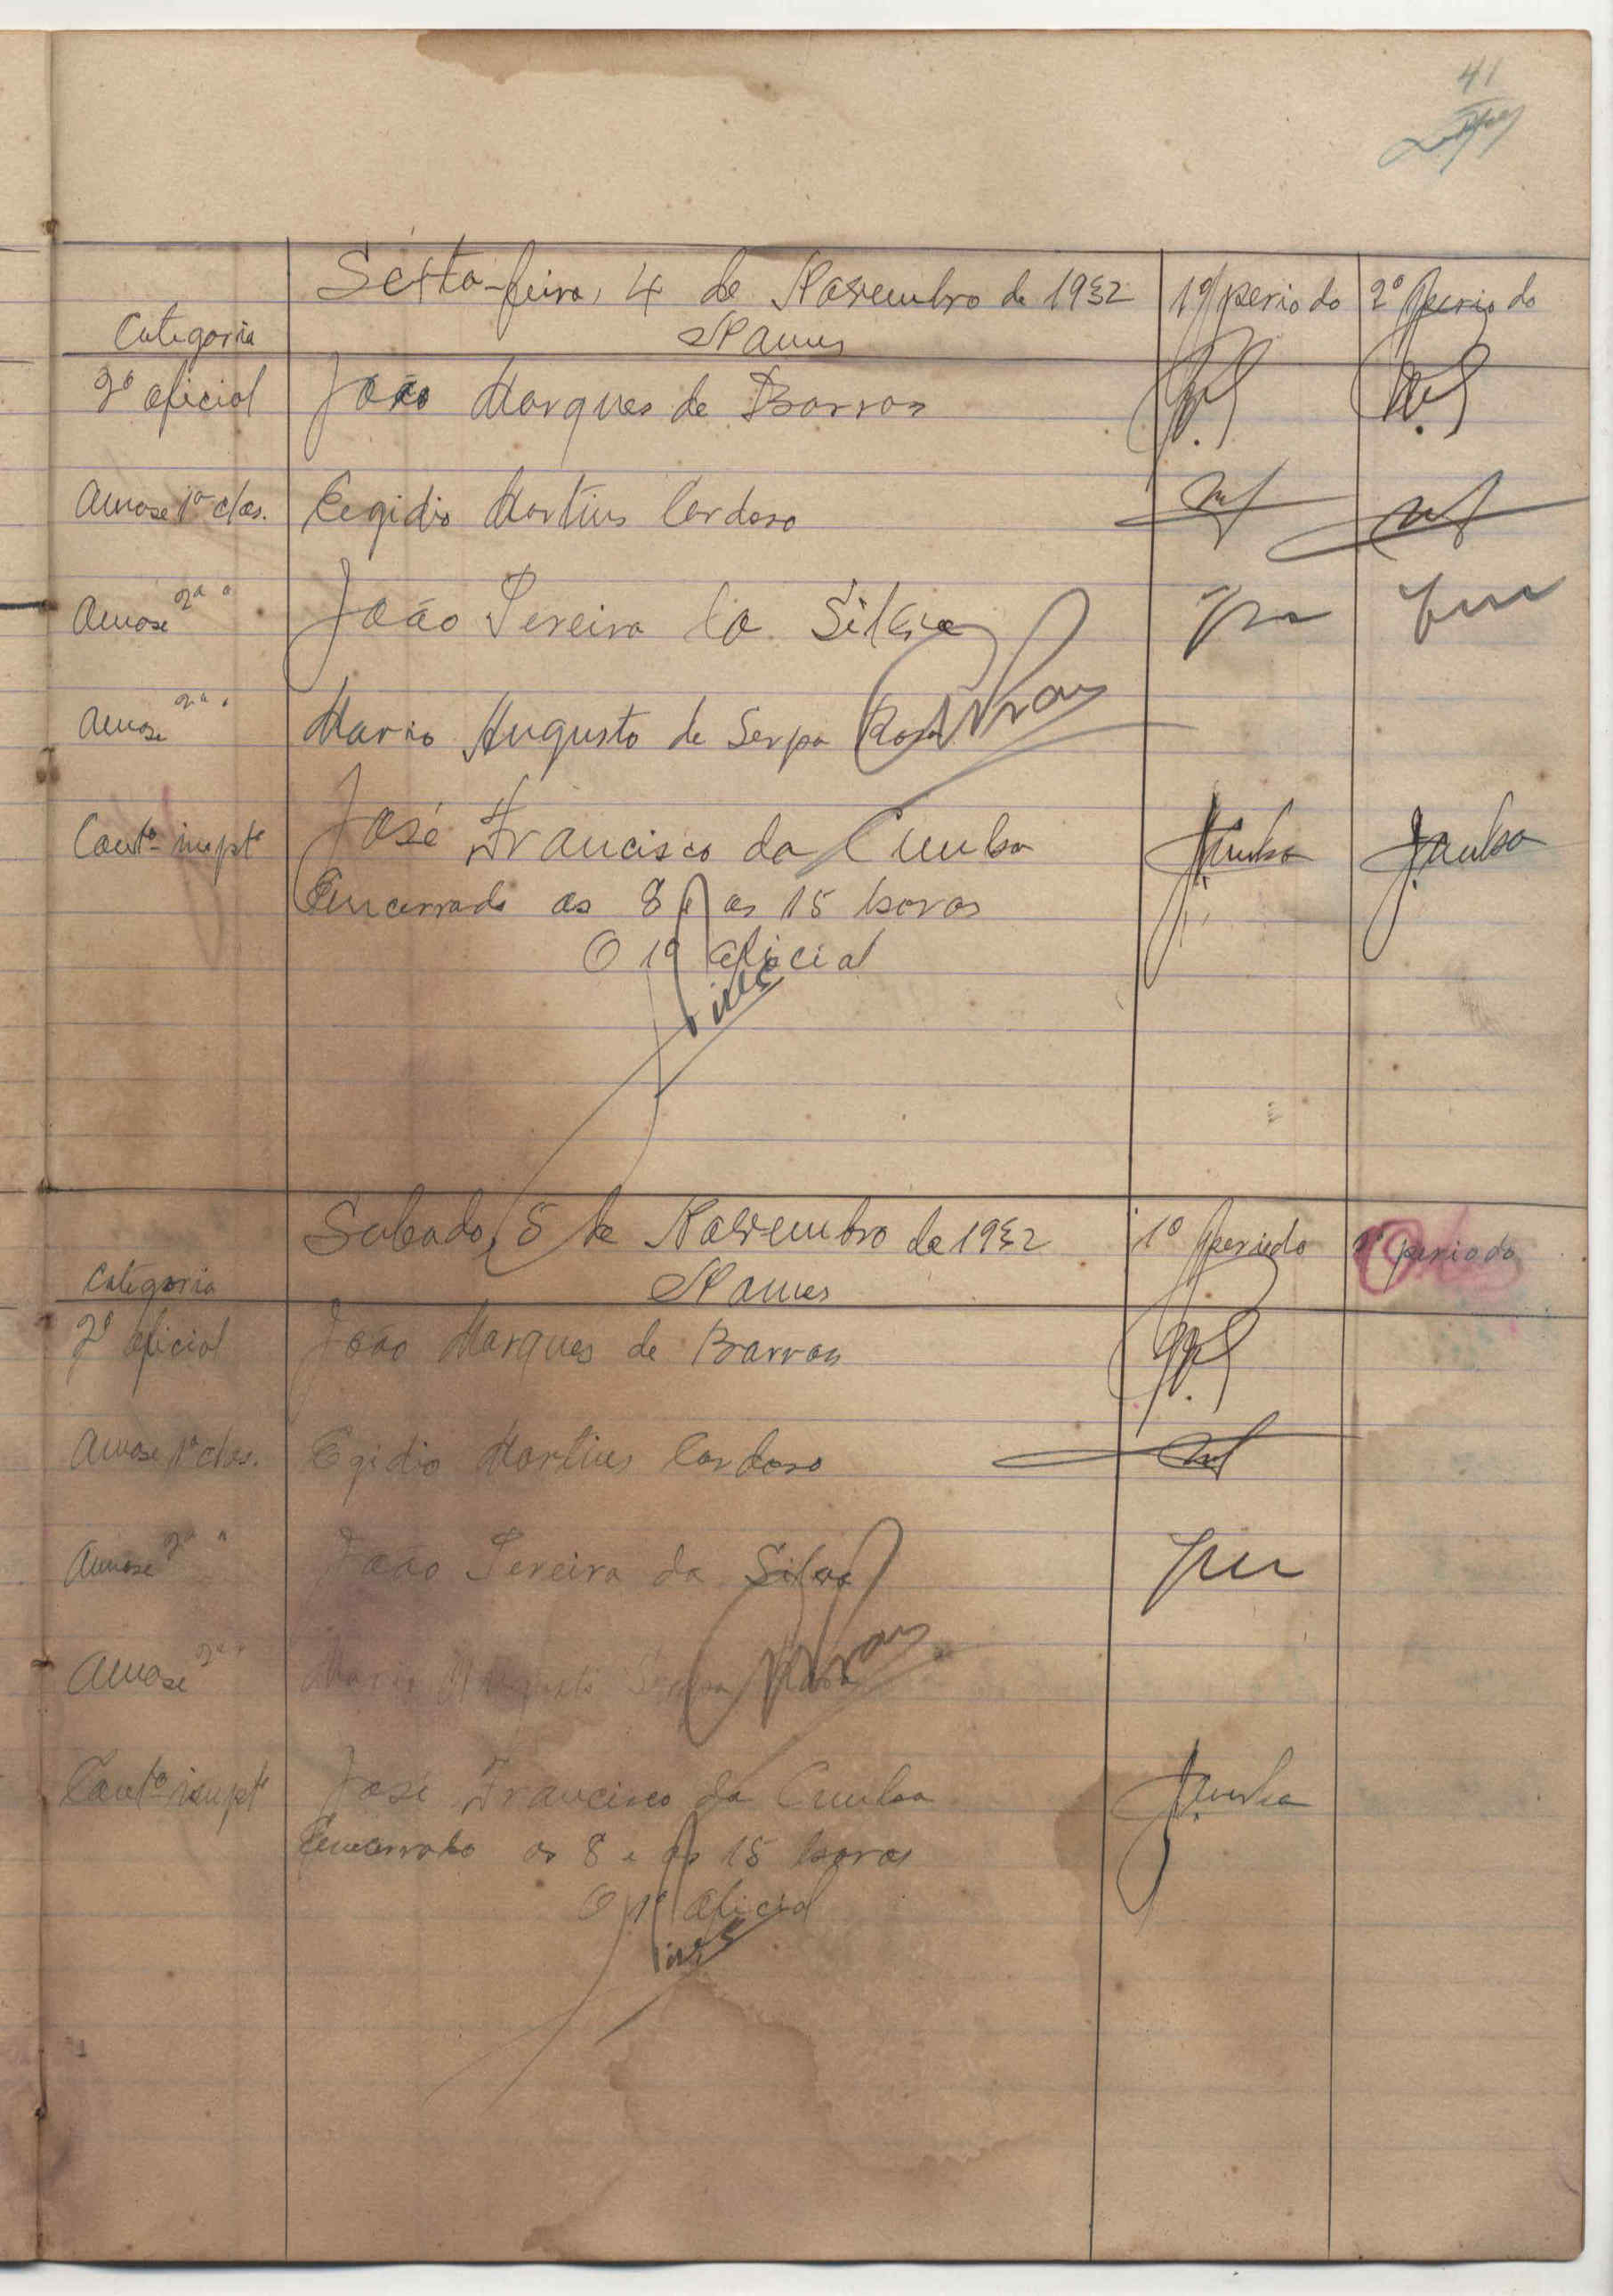 41
Sexta-feira, 4 de Novembro de 1932 1º periodo 2º periodo
Categoria Nomes
2º oficial João Marques de Barros
Amase 1ª clas. Egidio Martins Cardoso
Amase 2ª " João Pereira da Silva
Amase 2ª " Mario Augusto de Serpa Rosa
José Francisco da Cunha JCunha JCunha
Encerrado as 8 e as 15 horas
O 1º oficial
Pires
Sabado, 5 de Novembro de 1932 1º periodo 2º periodo
Categoria Nomes
2º oficial João Marques de Barros
Amase 1ª clas. Egidio Martins Cardoso
Amase 2ª " João Pereira da Silva
Amase 2ª " Mario Augusto Serpa Rosa
José Francisco da Cunha JCunha
Encerrado as 8 e as 15 horas
O 1º oficial
Pires